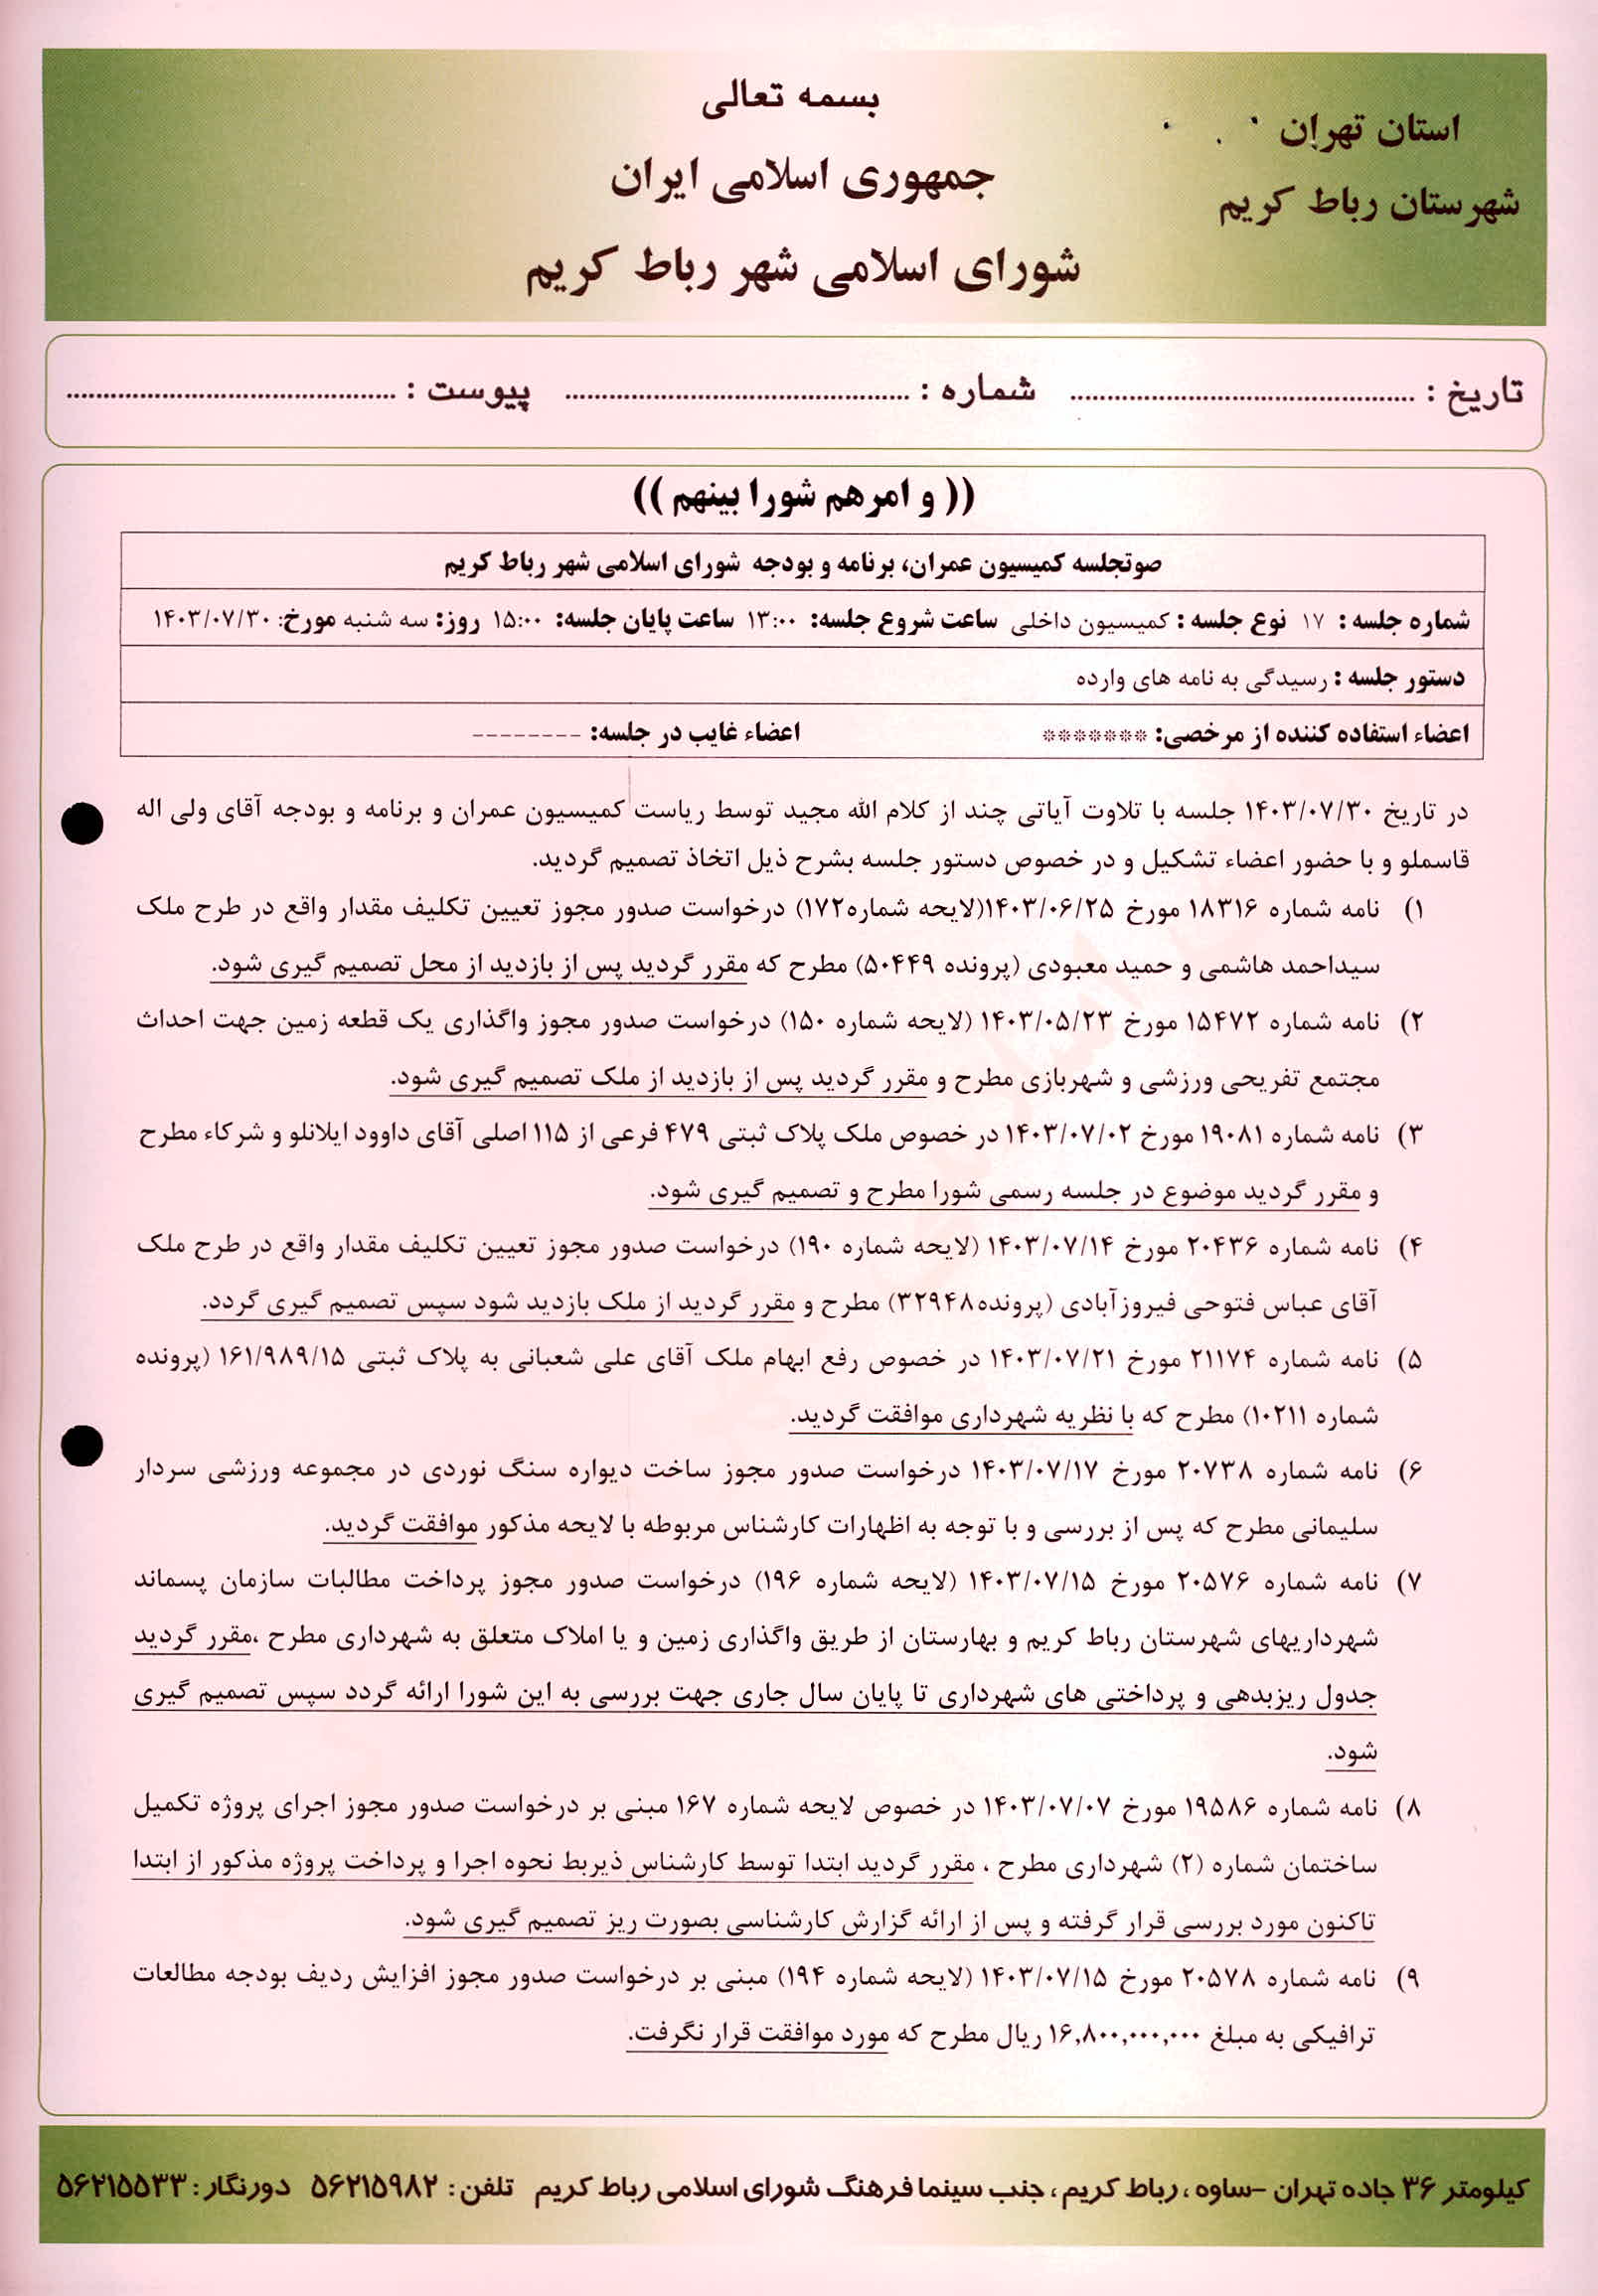 بسمه تعالی
جمهوری اسلامی ایران
شورای اسلامی شهر رباط کریم
استان تهران
شهرستان رباط کریم
تاریخ : ............................................... شماره : ............................................... پیوست : ...............................................
(( و امرهم شورا بینهم ))
صوتجلسه کمیسیون عمران، برنامه و بودجه شورای اسلامی شهر رباط کریم
شماره جلسه : ۱۷ نوع جلسه : کمیسیون داخلی ساعت شروع جلسه: ۱۳:۰۰ ساعت پایان جلسه: ۱۵:۰۰ روز: سه شنبه مورخ: ۱۴۰۳/۰۷/۳۰
دستور جلسه : رسیدگی به نامه های وارده
اعضاء استفاده کننده از مرخصی: ******* اعضاء غایب در جلسه: --------
در تاریخ ۱۴۰۳/۰۷/۳۰ جلسه با تلاوت آیاتی چند از کلام الله مجید توسط ریاست کمیسیون عمران و برنامه و بودجه آقای ولی اله
قاسملو و با حضور اعضاء تشکیل و در خصوص دستور جلسه بشرح ذیل اتخاذ تصمیم گردید.
۱) نامه شماره ۱۸۳۱۶ مورخ ۱۴۰۳/۰۶/۲۵(لایحه شماره۱۷۲) درخواست صدور مجوز تعیین تکلیف مقدار واقع در طرح ملک
سیداحمد هاشمی و حمید معبودی (پرونده ۵۰۴۴۹) مطرح که مقرر گردید پس از بازدید از محل تصمیم گیری شود.
۲) نامه شماره ۱۵۴۷۲ مورخ ۱۴۰۳/۰۵/۲۳ (لایحه شماره ۱۵۰) درخواست صدور مجوز واگذاری یک قطعه زمین جهت احداث
مجتمع تفریحی ورزشی و شهربازی مطرح و مقرر گردید پس از بازدید از ملک تصمیم گیری شود.
۳) نامه شماره ۱۹۰۸۱ مورخ ۱۴۰۳/۰۷/۰۲ در خصوص ملک پلاک ثبتی ۴۷۹ فرعی از ۱۱۵ اصلی آقای داوود ایلانلو و شرکاء مطرح
و مقرر گردید موضوع در جلسه رسمی شورا مطرح و تصمیم گیری شود.
۴) نامه شماره ۲۰۴۳۶ مورخ ۱۴۰۳/۰۷/۱۴ (لایحه شماره ۱۹۰) درخواست صدور مجوز تعیین تکلیف مقدار واقع در طرح ملک
آقای عباس فتوحی فیروزآبادی (پرونده۳۲۹۴۸) مطرح و مقرر گردید از ملک بازدید شود سپس تصمیم گیری گردد.
۵) نامه شماره ۲۱۱۷۴ مورخ ۱۴۰۳/۰۷/۲۱ در خصوص رفع ابهام ملک آقای علی شعبانی به پلاک ثبتی ۱۶۱/۹۸۹/۱۵ (پرونده
شماره ۱۰۲۱۱) مطرح که با نظریه شهرداری موافقت گردید.
۶) نامه شماره ۲۰۷۳۸ مورخ ۱۴۰۳/۰۷/۱۷ درخواست صدور مجوز ساخت دیواره سنگ نوردی در مجموعه ورزشی سردار
سلیمانی مطرح که پس از بررسی و با توجه به اظهارات کارشناس مربوطه با لایحه مذکور موافقت گردید.
۷) نامه شماره ۲۰۵۷۶ مورخ ۱۴۰۳/۰۷/۱۵ (لایحه شماره ۱۹۶) درخواست صدور مجوز پرداخت مطالبات سازمان پسماند
شهرداریهای شهرستان رباط کریم و بهارستان از طریق واگذاری زمین و یا املاک متعلق به شهرداری مطرح ،مقرر گردید
جدول ریزبدهی و پرداختی های شهرداری تا پایان سال جاری جهت بررسی به این شورا ارائه گردد سپس تصمیم گیری
شود.
۸) نامه شماره ۱۹۵۸۶ مورخ ۱۴۰۳/۰۷/۰۷ در خصوص لایحه شماره ۱۶۷ مبنی بر درخواست صدور مجوز اجرای پروژه تکمیل
ساختمان شماره (۲) شهرداری مطرح ، مقرر گردید ابتدا توسط کارشناس ذیربط نحوه اجرا و پرداخت پروژه مذکور از ابتدا
تاکنون مورد بررسی قرار گرفته و پس از ارائه گزارش کارشناسی بصورت ریز تصمیم گیری شود.
۹) نامه شماره ۲۰۵۷۸ مورخ ۱۴۰۳/۰۷/۱۵ (لایحه شماره ۱۹۴) مبنی بر درخواست صدور مجوز افزایش ردیف بودجه مطالعات
ترافیکی به مبلغ ۱۶,۸۰۰,۰۰۰,۰۰۰ ریال مطرح که مورد موافقت قرار نگرفت.
کیلومتر ۳۶ جاده تهران -ساوه ، رباط کریم ، جنب سینما فرهنگ شورای اسلامی رباط کریم تلفن : ۵۶۲۱۵۹۸۲ دورنگار : ۵۶۲۱۵۵۳۳